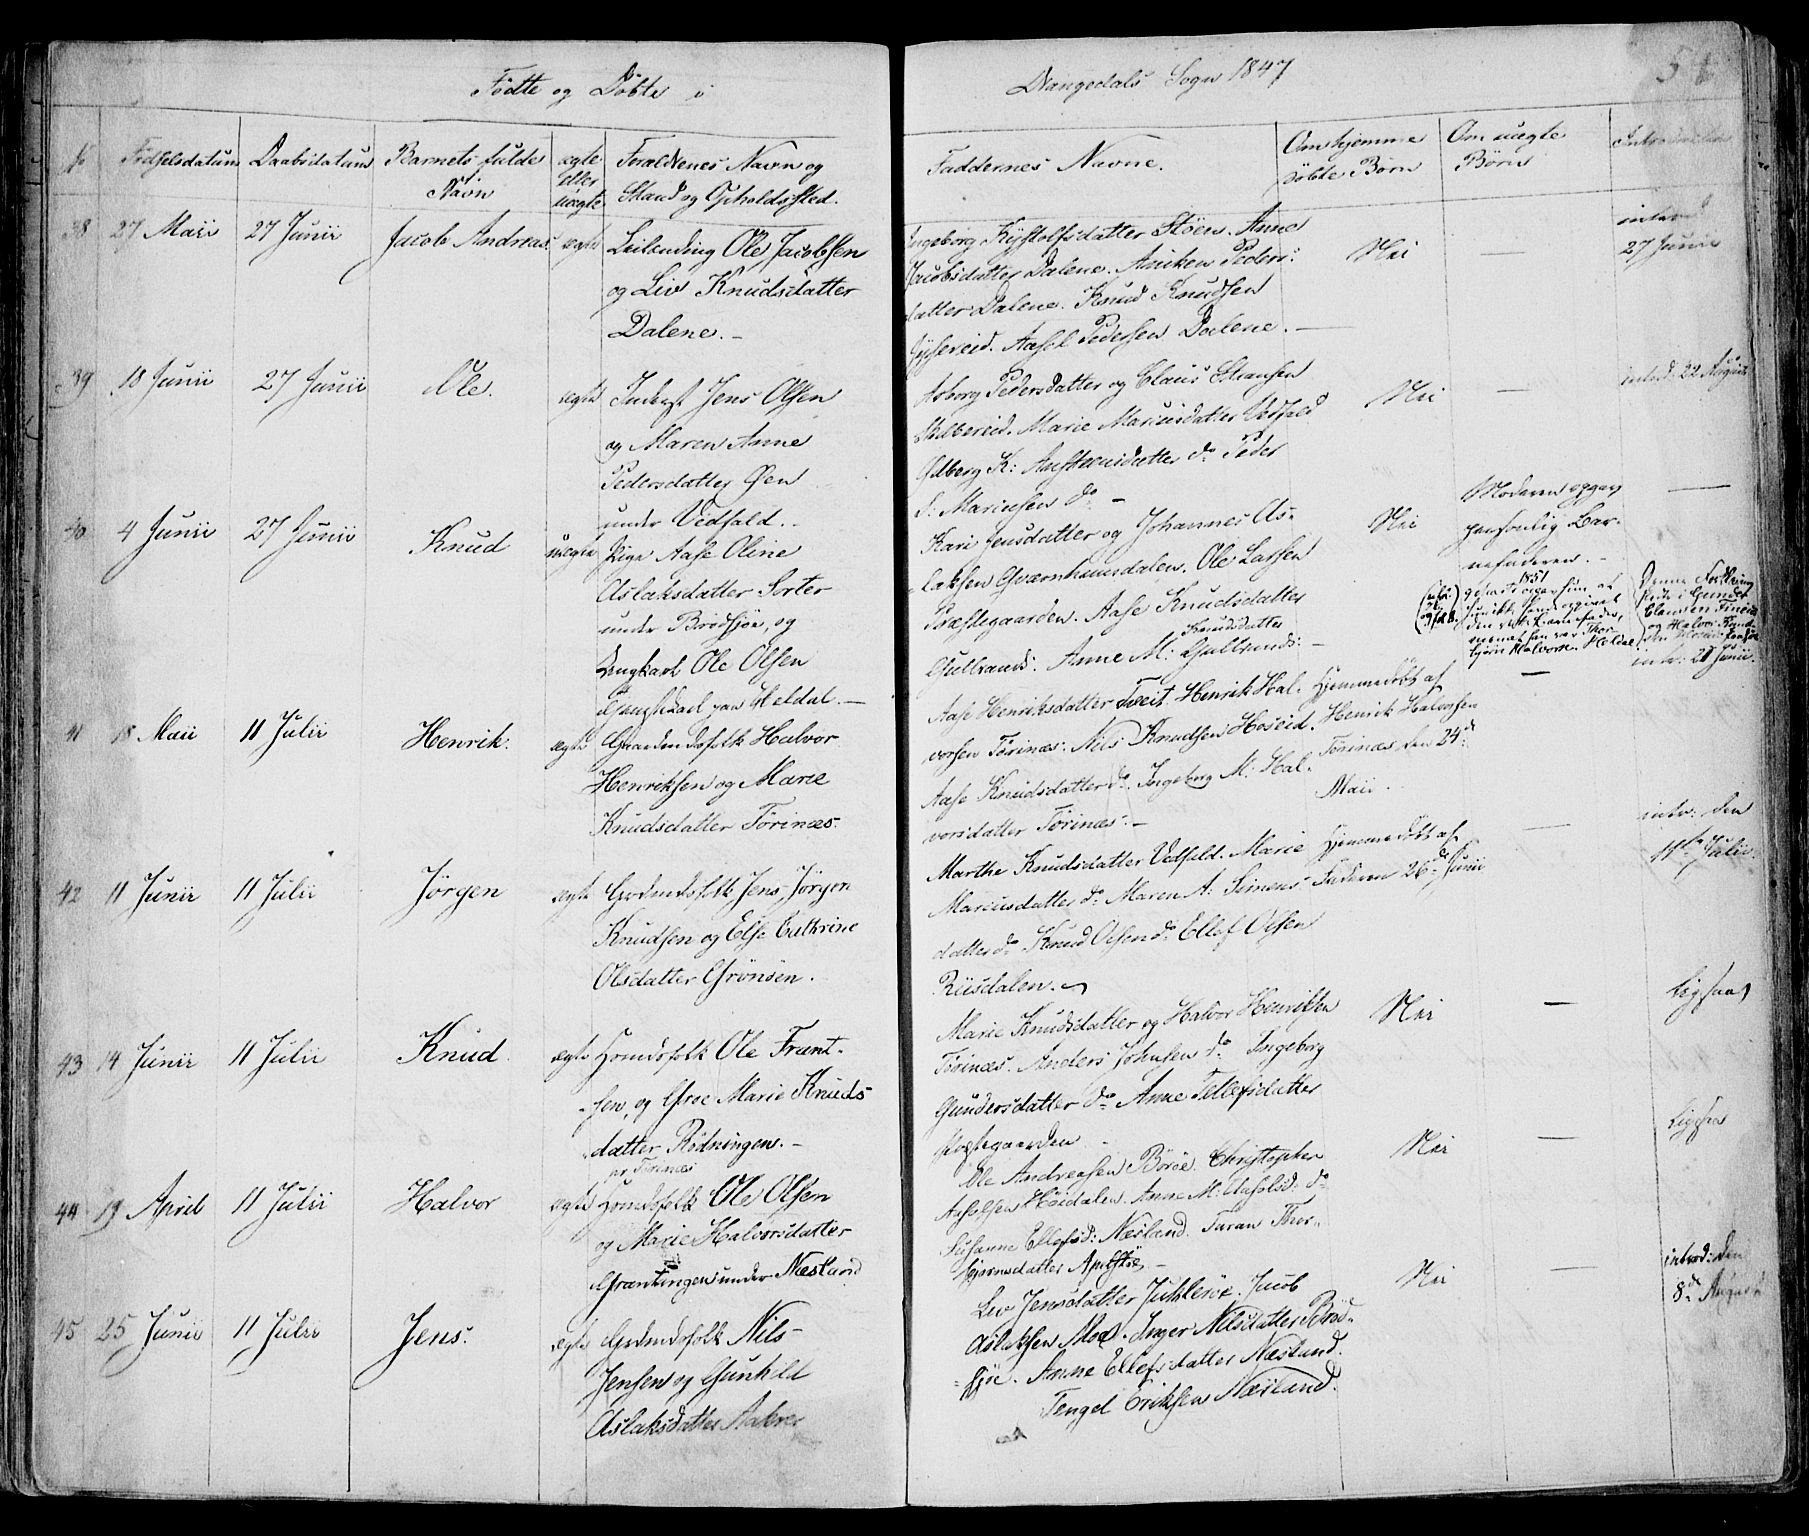 Födte og Döbte i
Drangedals Sogn 1847
5
№ Fødselsdatum Daabsdatum Barnets fulde Navn ægte eller uægte Forældrenes Navn og Stand og Opholdssted.
Faddernes Navne. Om hjemme döbte Börn Om uægte Börn
38 27 Maii 27 Junii Jacob Andreas ægte Leilending Ole Jacobsen
og Liv Knudsdatter
Dalene.-
Ingeborg Kystolfsdatter Stöen. Anne
Jacobsdatter Dalene. Aniken Peders:
datter Dalene. Knud Knudsen
Aasol Pedersen Dalene.-
Nei —
introd
27 Junii
39 18 Junii 27 Junii Ole. ægte Inderst Jens Olsen
og Maren Anne
Pedersdatter Øen
under Vedfald.-
Asborg Pedersdatter og Claus
Marie Mariusdatter Vedfald
do Peder
S: Mariusen do -
Nei —
introd: 22 August
40 4 Junii 27 Junii Knud uægte Pige Aase Oline
Aslaksdatter Sorter
under Brödsjöe, og
Ungkarl Ole Olsen
Heldal.-
Kari Jensdatter og Johannes As-
laksen Qværnhuusdalen. Ole Larsen
Præstegaarden. Aase Knudsdatter
Gulbrands: Anne M: Knudsdatter Gulbrands: -
Nei
Moderen opgav
personlig Bar-
nefaderen.-
1851
Halvors. Heldal
Denne
Gunder
Clausen
og Halvor Knud-
—
41 18 Maii 11 Julii Henrik. ægte Gaardmandsfolk Halvor
Henriksen og Marie
Knudsdatter Törinæs.
Aase Henriksdatter Tveit. Henrik Hal-
vorsen Törinæs. Nils Knudsen Hoseid.
Aase Knudsdatter do. Ingeborg M: Hal-
vorsdatter Törinæs.-
Hjemmedöbt af
Henrik Halvorsen
Törinæs den 24de
Maii.
—
intr: 21 Junii.
42 11 Junii 11 Julii Jörgen ægte Jens Jörgen
Knudsen og Else Cathrine
Olsdatter Grönsen.
Marthe Knudsdatter Vedfald. Marie
Mariusdatter do. Maren A: Simens-
datter do. Knud Olsen do. Ellef Olsen
Riisdalen.
Hjemmedöbt af
Faderen 26de Junii
—
intr: den
11te Julii.
43 14 Junii 11 Julii Knud. ægte Hmdsfolk Ole Frant-
sen, og Groe Marie Knuds-
datter Rödningen.-
pr Törinæs
Marie Knudsdatter og Halvor Henriksen
Törinæs. Anders Johnsen do Ingeborg
Gundersdatter do. Anne Tellefsdatter
Nei —
ligesaa
44 19 April 11 Julii Halvor ægte Hmdsfolk Ole Olsen
og Marie Halvorsdatter
under Næsland
Ole Andreasen Böröe. Christopher
Höidalen. Anne M: do
Susanne Ellefsd: Næsland. Taran Thor-
björnsdatter -
Nei —
ligesaa
45 25 Junii 11 Julii Jens. ægte Nils
Jensen og Gunhild
Aslaksdatter
Liv Jensdatter Jacob
Aslaksen Moe. Inger Nilsdatter Bröd-
sjöe. Anne Ellefsdatter Næsland.
Tengel Eriksen Næsland.
Nei —
introd: den
8de August